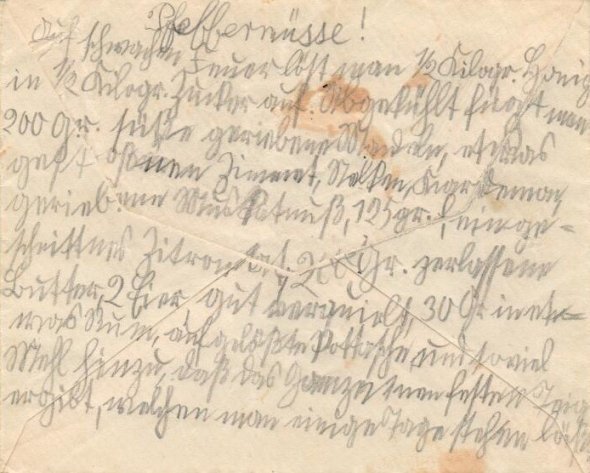 Pfebbernüsse!
Auf schwachen Feuer löst man 1/2 Kilogr. Honig
in 1/2 Kilogr. Zucker auf. Abgekühlt fügt man
200 Gr. süße geriebene Mandeln, etwas
gestoßnen Zimmet, Nelken, Kardemon,
geriebene Muskatnuß, 125 gr. feinge-
schnittnes Zitronat, Gr. zerlassene
Butter, 2 Eier, gut verquielt, 30 Gr in et-
was Rum, aufgelößte Pottasche und soviel
Mehl hinzu, daß das Ganze einen festen Teig
ergibt, welchen man einige Tage stehen läßt